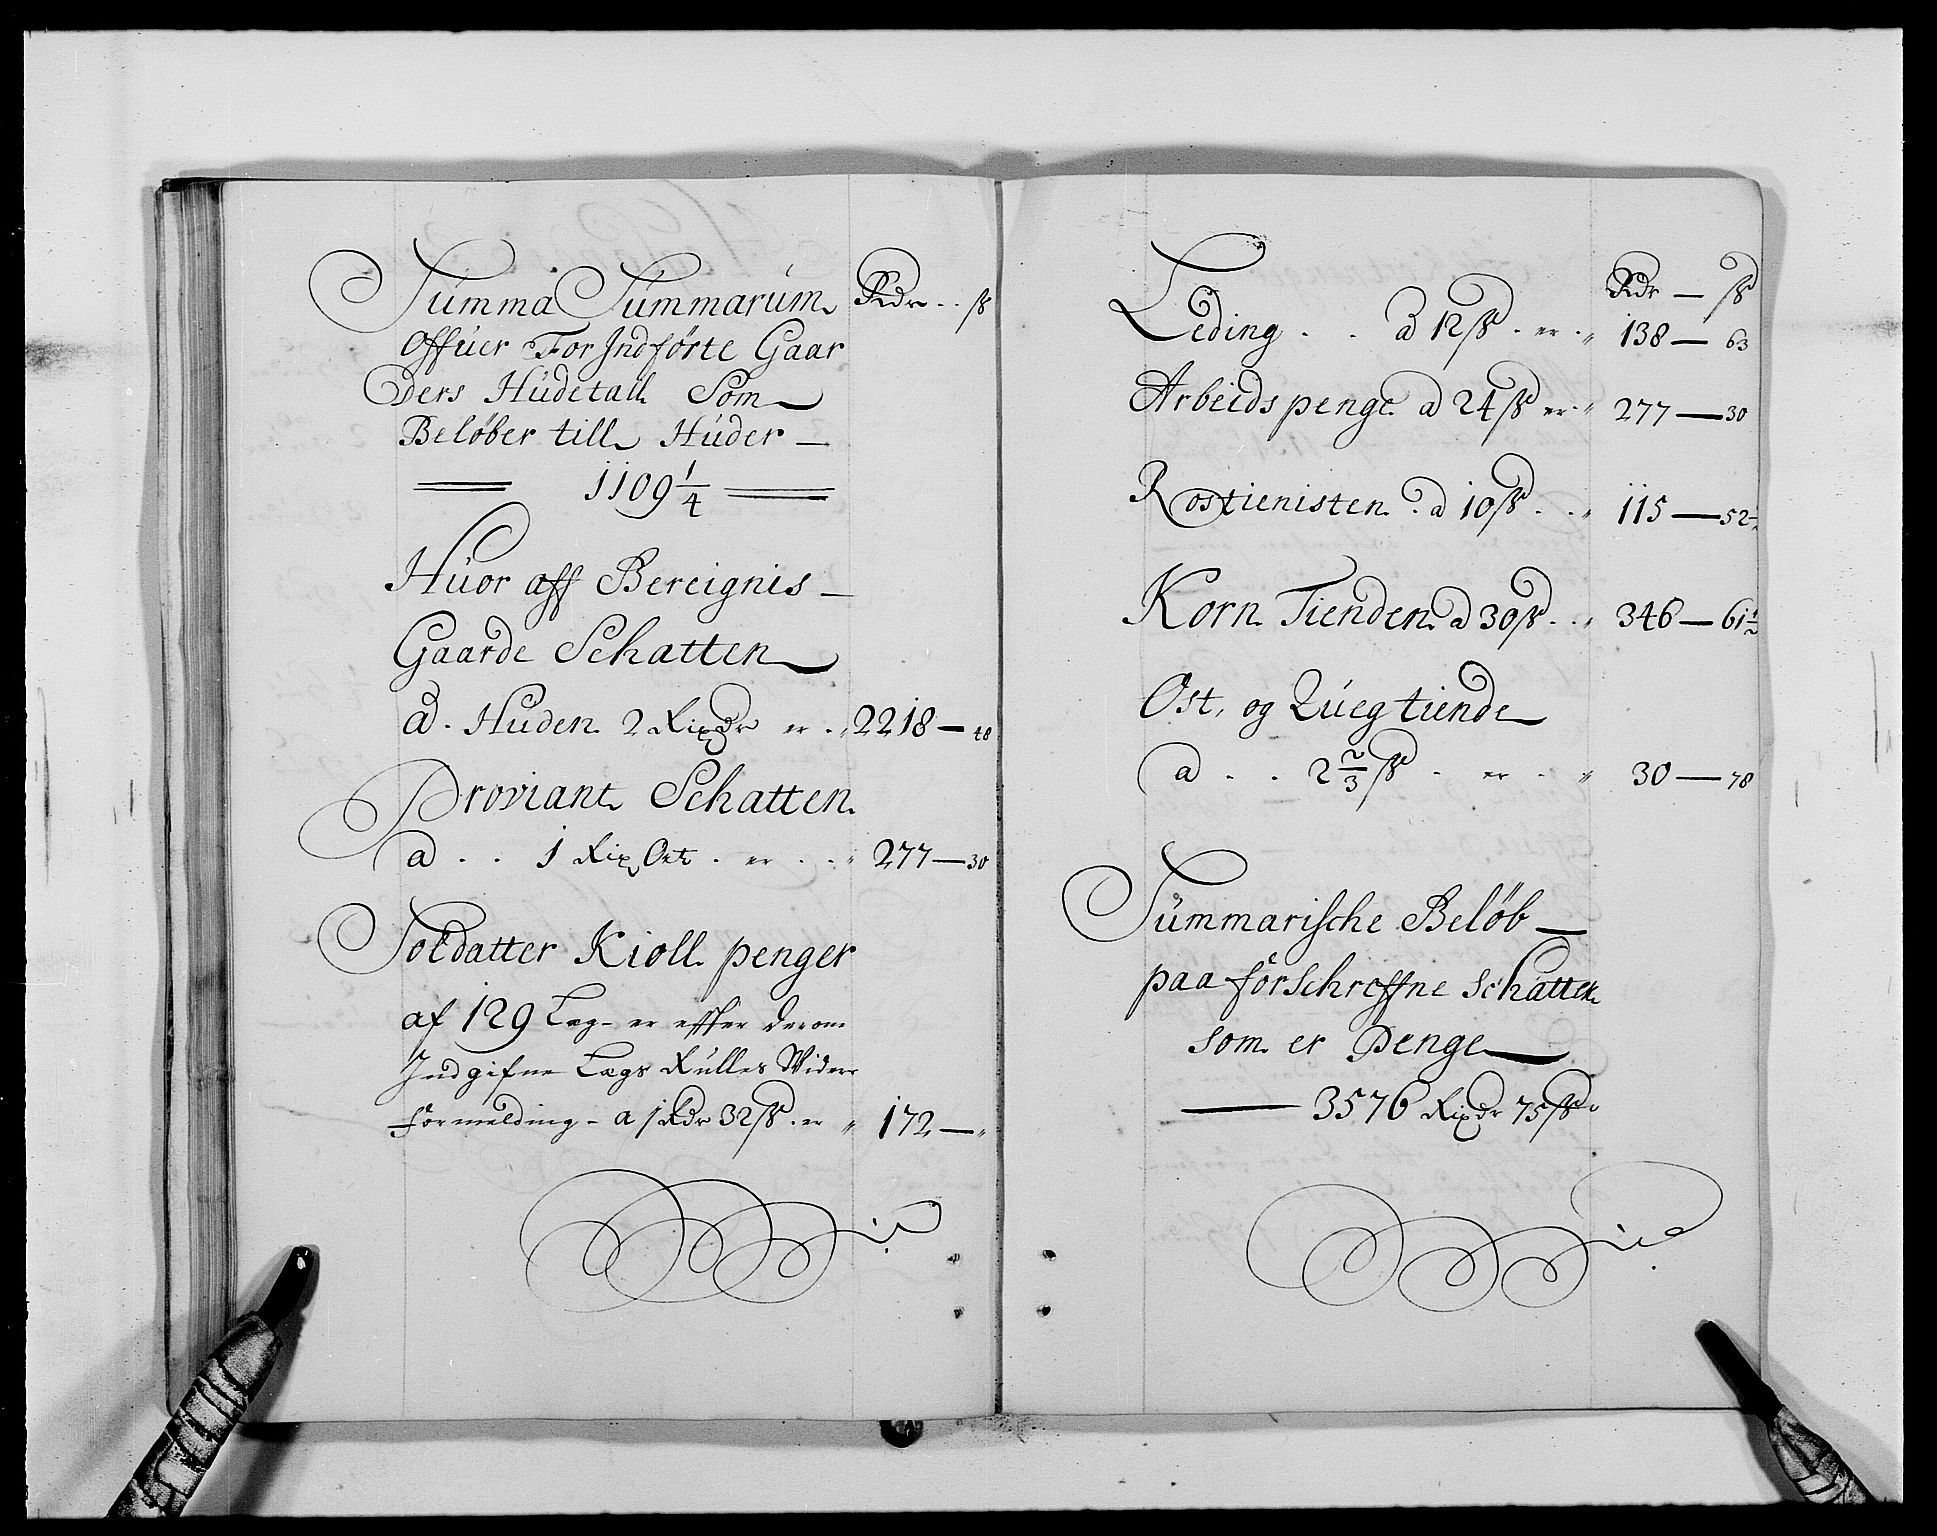 Summa Summarum Rdr - ß
Offuer For Indførte Gaar
Ders Hüdetall Som
Beløber till Hüder
1109 1/4
Huor aff Bereignis
Gaarde Schatten
ad. Huden 2 Rixdr er 2218 — 48
Proviant Schatten
a . . 1 Rix Ort . er . 277 — 30
Soldatter Kioll penger
af 129 Læg - er effter derom
Indgifne Lægs Rulles Widere
formelding - a 1 Rdr 32 ß . er 172 — "
Rdr — ß
Leding . . a 12 ß . er . 138 — 63
Arbeids penge a 24 ß er . 277 — 30
Rostienisten . a 10 ß . . 115 — 52 1/2
Korn Tienden a 30 ß . . 346 — 61 1/2
Ost. og Quegtiende
a . . 2 2/3 ß . er . 30 — 78
Summarische Beløb
paa forschreffne schatter
som er Penge
3576 Rixdr 75 ß